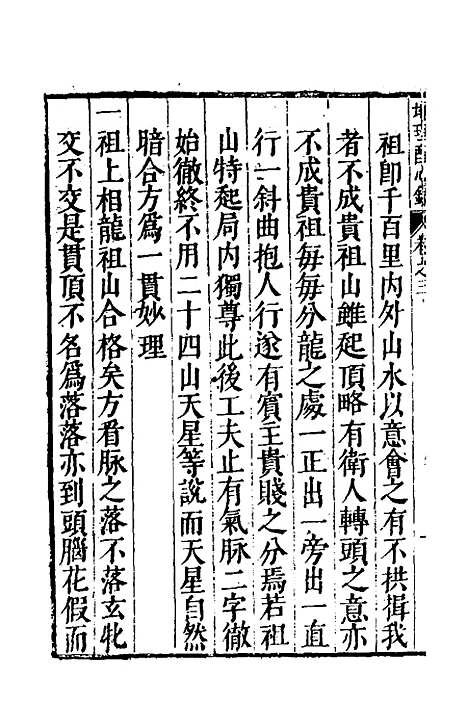 地理醒心錄 卷之三
祖卽千百里內外山水以意會之有不拱揖我
者不成貴祖山雖起頂略有衛人轉頭之意亦
不成貴祖每每分龍之處一正出一旁出一直
行一斜曲抱人行遂有賓主貴賤之分焉若祖
山特起局內獨尊此後工夫止有氣脉二字徹
始徹終不用二十四山天星等說而天星自然
暗合方爲一貫妙理
一祖上相龍祖山合格矣方看脉之落不落玄牝
交不交是貫頂不名爲落落亦到頭腦花假而